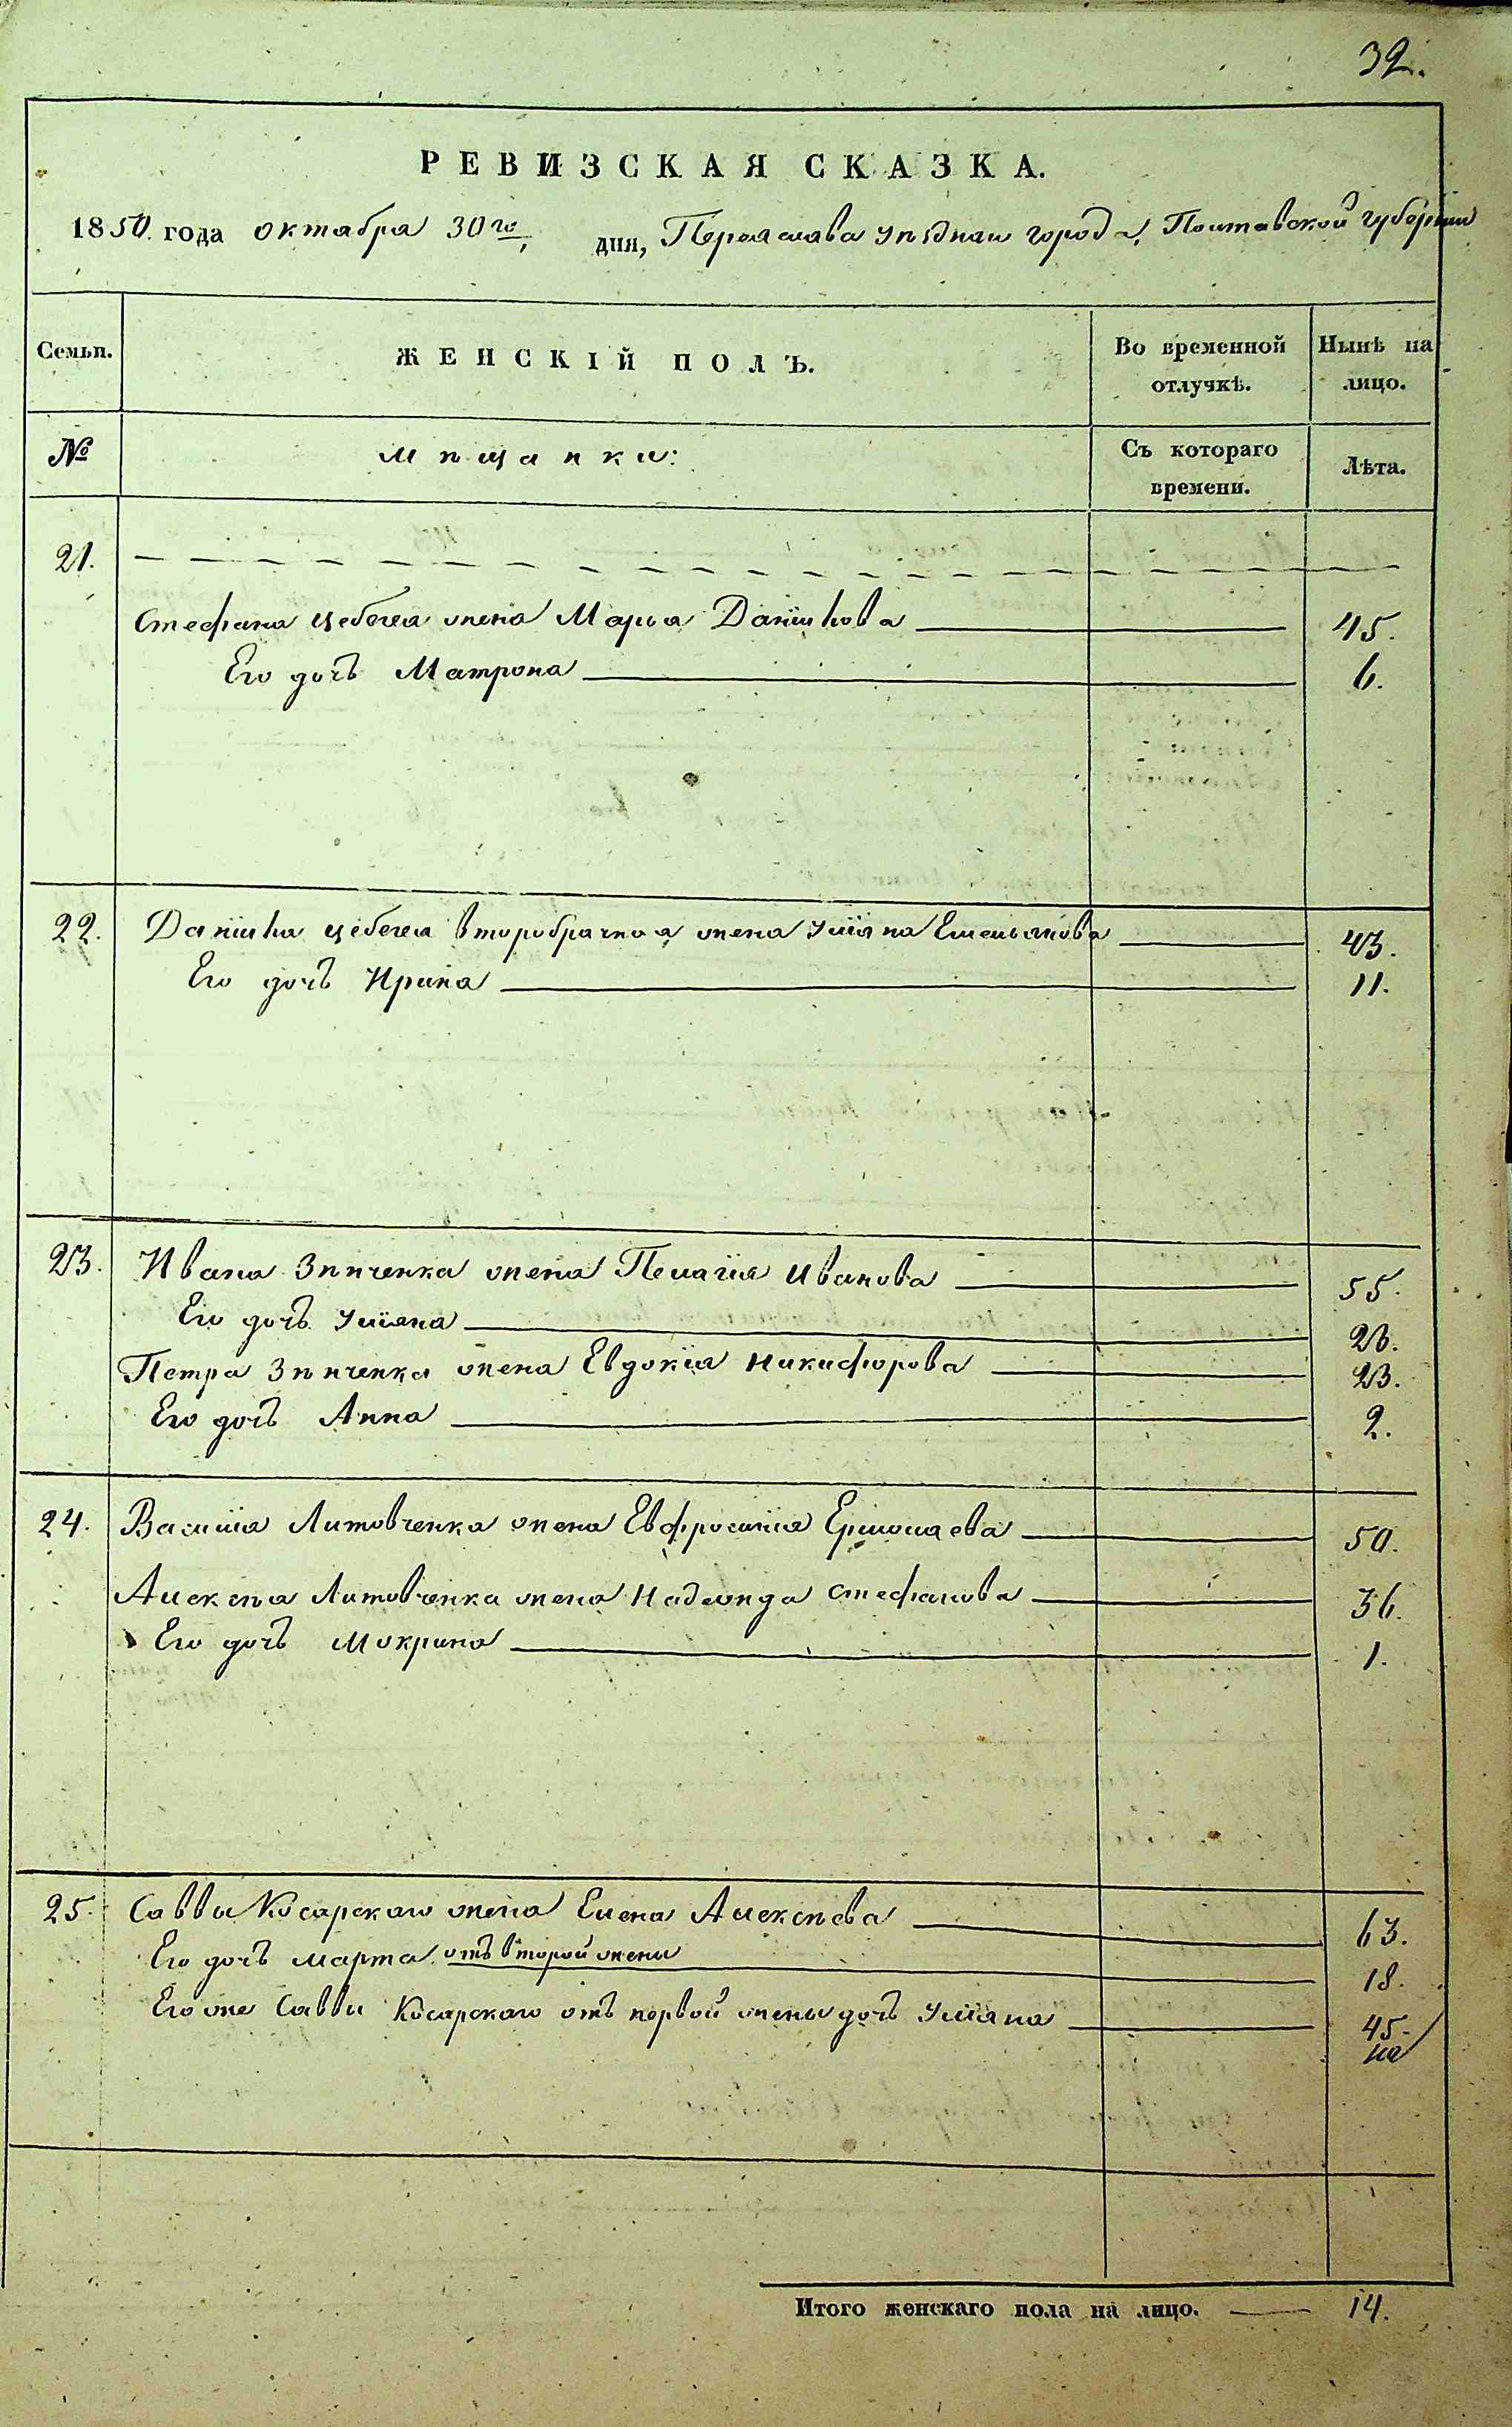 32.
РЕВИЗСКАЯ СКАЗКА.
1850 года октабра 30го дня, Переяслава уѣзднаго города, Полтавской губерніи
Семьи. ЖЕНСКІЙ ПОЛЪ. Во временной отлучкѣ. Нынѣ на лицо.
№ мѣщанки: Съ котораго времени. Лѣта.
21.
Стефана Цебегея жена Марья Данілова 45.
Его дочь Матрона 6.
22. Даніила Цебегея второбрачная жена Уліяна Емельянова 43.
Его дочь Ирина 11.
23. Ивана Зѣнченка жена Пелагія Иванова 55.
Его дочь Уліяна 23.
Петра Зѣнченка жена Евдокія Никифорова 23.
Его дочь Анна 2.
24. Василія Литовченка жена Евфросинія Ермолаева 50.
Алексѣя Литовченка жена Надежда Стефанова 36.
Его дочь Мокрина 1.
25. Саввы Косарскаго жена Елена Алексѣева 63.
Его дочь Марта отъ второй жены 18.
Его же Саввы Косарскаго отъ первой жены дочь Уліяна 45.
Итого женскаго пола на лицо. 14.